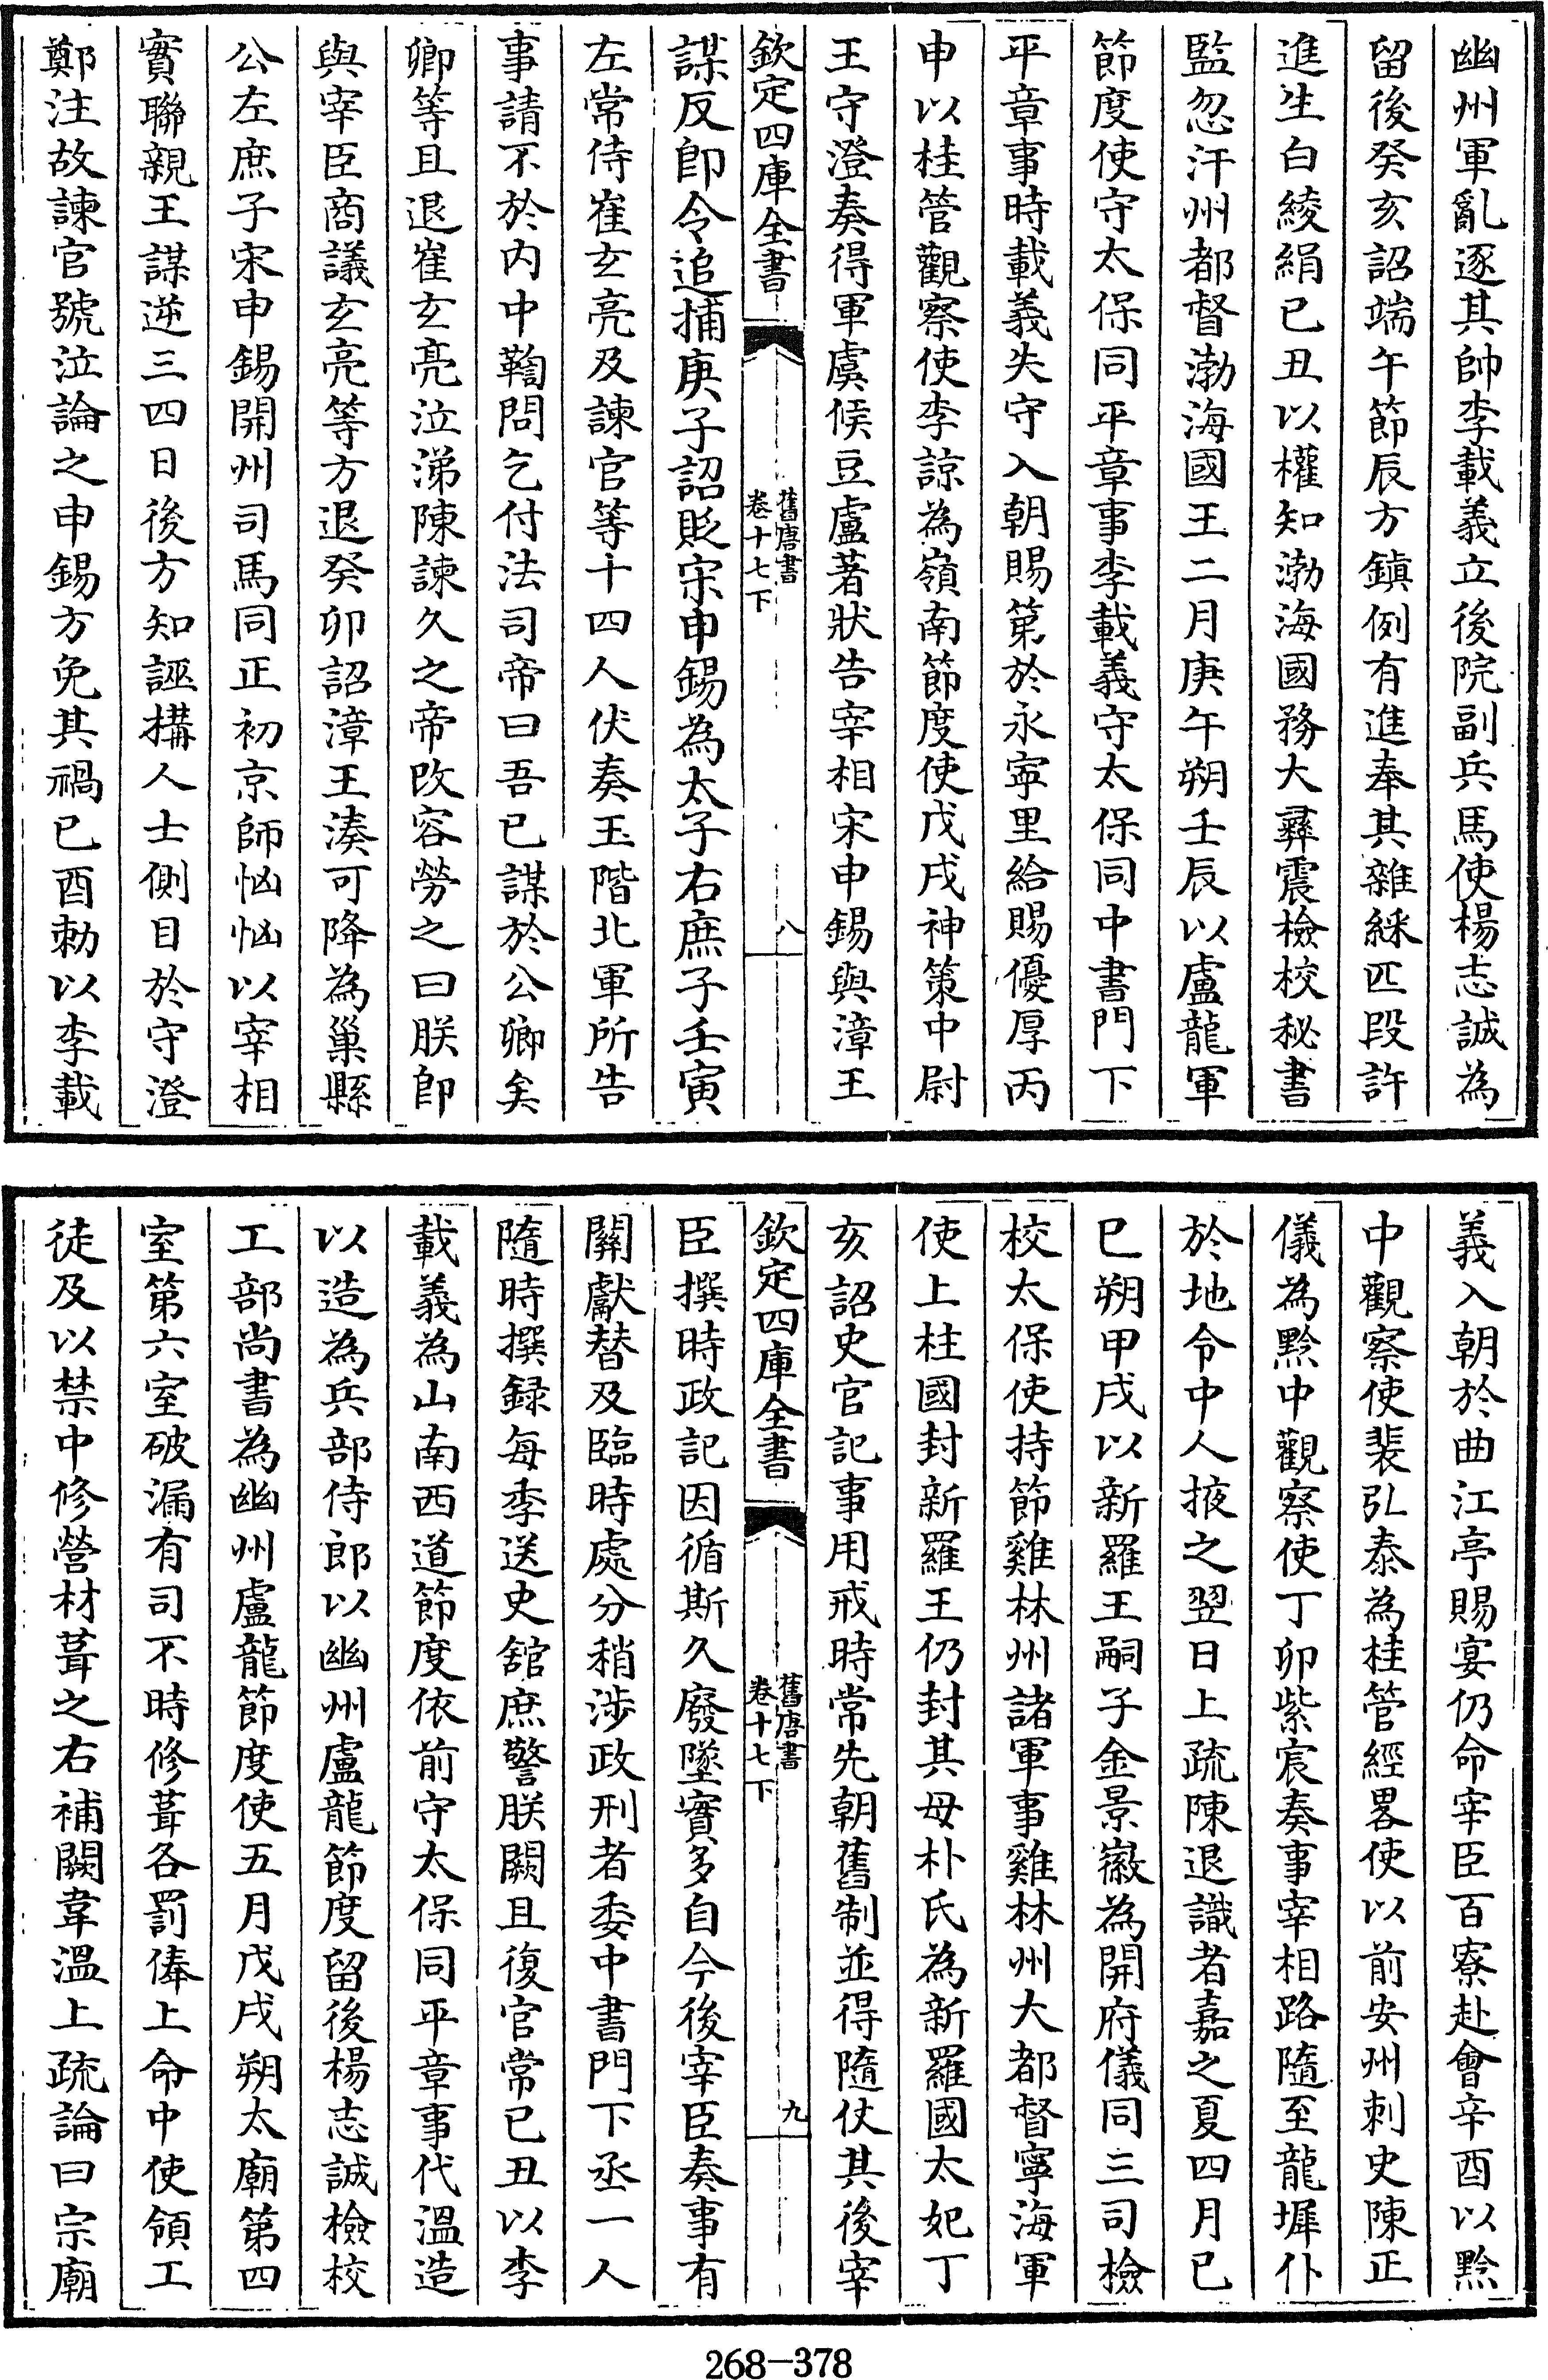 幽州軍亂逐其帥李載義立後院副兵馬使楊志誠為
留後癸亥詔端午節辰方鎮例有進奉其雜綵匹段許
進生白綾絹已丑以權知渤海國務大彛震檢校秘書
監忽汗州都督渤海國王二月庚午朔壬辰以盧龍軍
節度使守太保同平章事李載義守太保同中書門下
平章事時載義失守入朝賜第於永寜里給賜優厚丙
申以桂管觀察使李諒為嶺南節度使戊戌神策中尉
王守澄奏得軍虞候豆盧著狀告宰相宋申錫與漳王
欽定四庫全書
舊唐書
卷十七下
八
謀反即令追捕庚子詔貶宋申錫為太子右庶子壬寅
左常侍崔玄亮及諫官等十四人伏奏玉階北軍所告
事請不於内中鞫問乞付法司帝曰吾已謀於公卿矣
卿等且退崔玄亮泣涕陳諫久之帝改容勞之曰朕即
與宰臣商議玄亮等方退癸卯詔漳王湊可降為巢縣
公左庶子宋申錫開州司馬同正初京師忷忷以宰相
實聯親王謀逆三四日後方知誣搆人士側目於守澄
鄭注故諫官號泣論之申錫方免其禍已酉勅以李載
義入朝於曲江亭賜宴仍命宰臣百寮赴會辛酉以黔
中觀察使裴弘泰為桂管經畧使以前安州刺史陳正
儀為黔中觀察使丁卯紫宸奏事宰相路隨至龍墀仆
於地令中人掖之翌日上疏陳退識者嘉之夏四月已
巳朔甲戌以新羅王嗣子金景徽為開府儀同三司檢
校太保使持節雞林州諸軍事雞林州大都督寧海軍
使上柱國封新羅王仍封其母朴氏為新羅國太妃丁
亥詔史官記事用戒時常先朝舊制並得隨仗其後宰
欽定四庫全書
舊唐書
卷十七下
九
臣撰時政記因循斯久廢墜實多自今後宰臣奏事有
關獻替及臨時處分稍涉政刑者委中書門下丞一人
隨時撰録每季送史舘庶警朕闕且復官常已丑以李
載義為山南西道節度依前守太保同平章事代溫造
以造為兵部侍郎以幽州盧龍節度留後楊志誠檢校
工部尚書為幽州盧龍節度使五月戊戌朔太廟第四
室第六室破漏有司不時修葺各罰俸上命中使領工
徒及以禁中修營材葺之右補闕韋溫上疏論曰宗廟
268-378